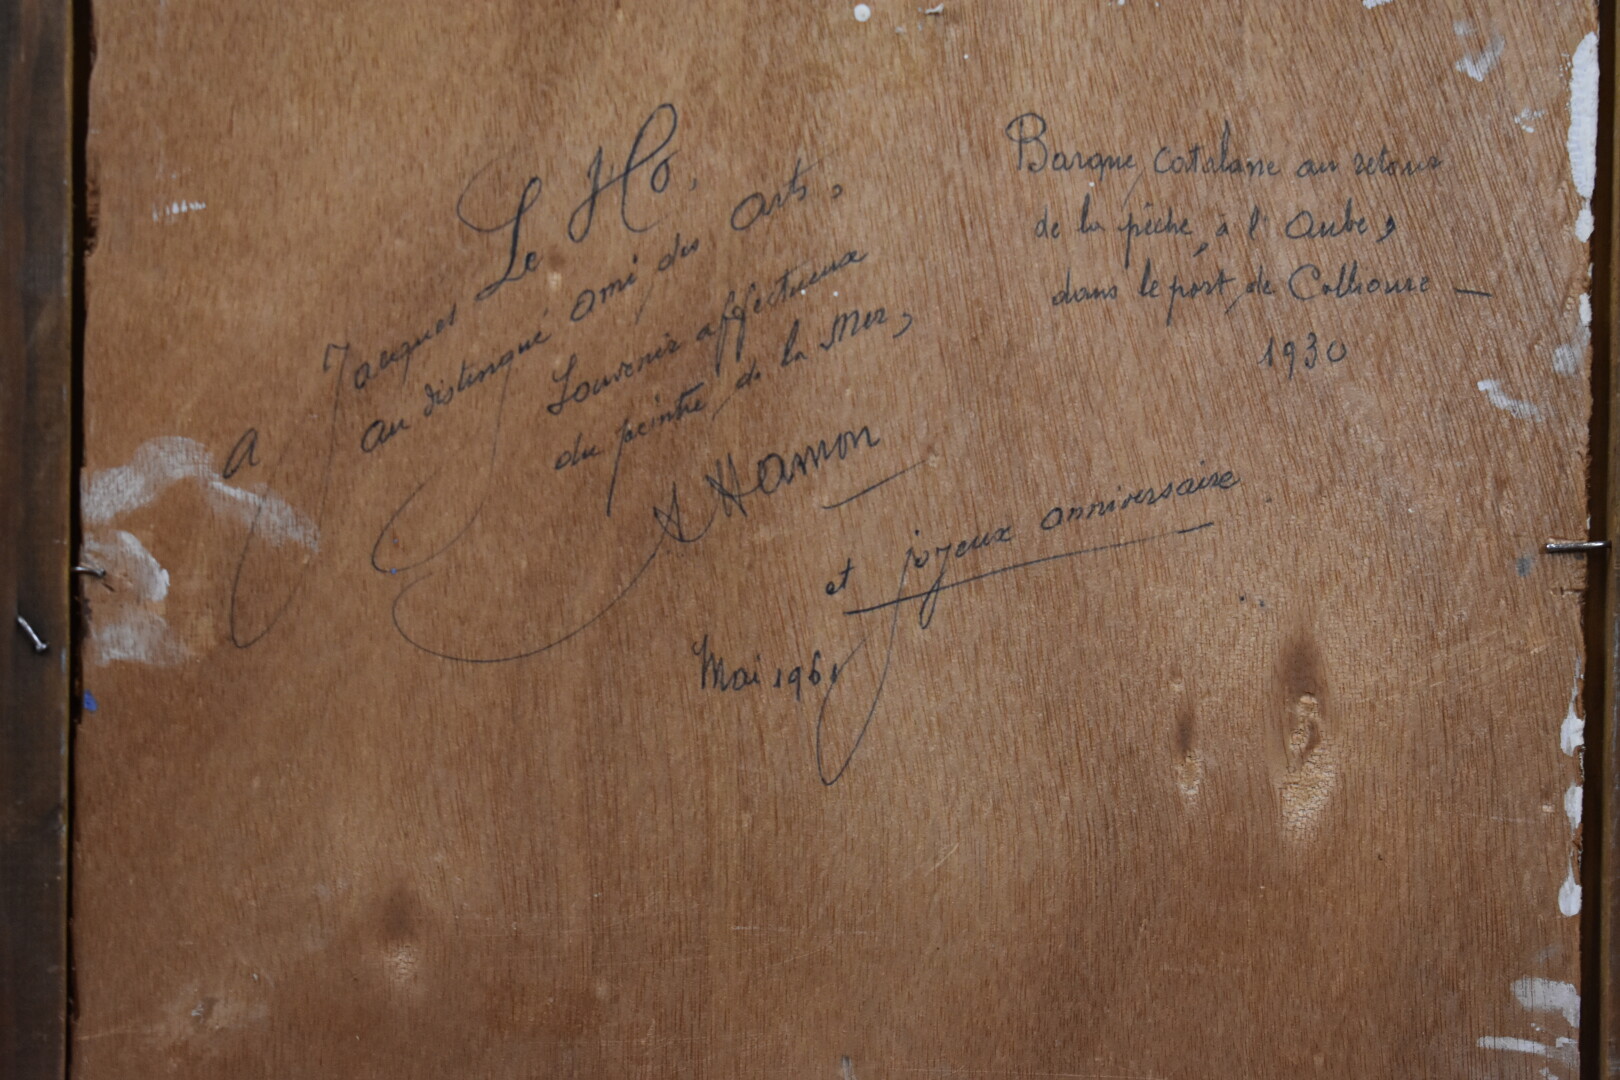 A Jacques Le Ho,
au distingué ami des arts,
Souvenir affectueux
du peintre de la Mer,
A Hamon
et joyeux anniversaire
Mai 1961
Barque catalane au retour
de la pêche, à l'Aube,
dans le port de Collioure —
1930